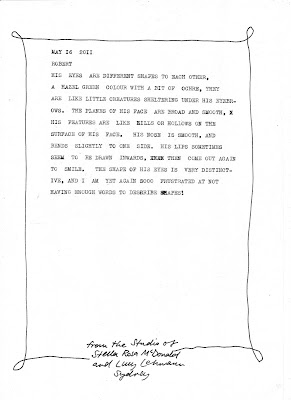 MAY 16 2011
ROBERT
HIS EYES ARE DIFFERENT SHAPES TO EACH OTHER,
A HAZEL GREEN COLOUR WITH A BIT OF OCHRE, THEY
ARE LIKE LITTLE CREATURES SHELTERING UNDER HIS EYEBR-
OWS. THE PLANES OF HIS FACE ARE BROAD AND SMOOTH, X
HIS FEATURES ARE LIKE HILLS OR HOLLOWS ON THE
SURFACE OF HIS FACE. HIS NOSE IS SMOOTH, AND
BENDS SLIGHTLY TO ONE SIDE. HIS LIPS SOMETIMES
SEEM TO BE DRAWN INWARDS, THEN COME OUT AGAIN
TO SMILE. THE SHAPE OF HIS EYES IS VERY DISTINCT-
IVE, AND I AM YET AGAIN FRUSTRATED AT NOT
HAVING ENOUGH WORDS TO DESCRIBE SHAPES!
from the Studio of
Stella Rosa McDonald
and Lucy Lehmann
Sydney